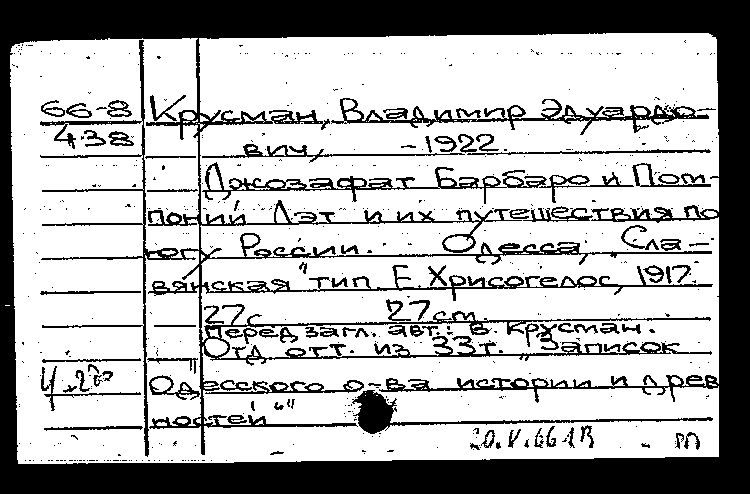 66-8 Крусман, Владимир Эдуардо-
438 вич, -1922.
Джозафат Барбаро и Пом-
поний Лэт и их путешествия по
югу России. Одесса, "Сла-
вянская" тип. Е. Хрисогелос, 1917.
27с. 27см.
Перед загл. авт.: В. Крусман.
Отд. отт. из 33 т. "Записок
"Одесского о-ва истории и древ
ностей""
20.V.66